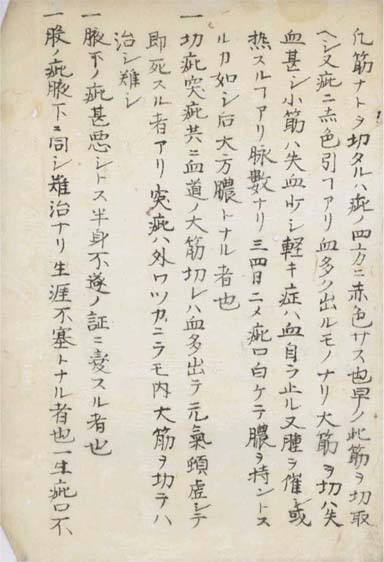 凡筋ナトヲ切タルハ疵ノ四方ニ赤色サス也早ク此筋ヲ切取
ヘシ又疵ニ赤色引ヿアリ血多ク出ルモノナリ大筋ヲ切ハ失
血甚シ小筋ハ失血少シ軽キ症ハ血自ラ止ル又腫ヲ催シ或
熱スルヿアリ脉數ナリ三四日ニメ疵口白ケテ膿ヲ持ントス
ルカ如シ后大方膿トナル者也
一切疵突疵共ニ血道ノ大筋切レハ血多出テ元氣頓虚シテ
即死スル者アリ突疵ハ外ワツカニラモ内大筋ヲ切テハ
治シ難シ
一腋下ノ疵甚悪シトス半身不遂ノ証ニ変スル者也
一股ノ疵腋下ニ同シ難治ナリ生涯不塞トナル者也一生疵口不